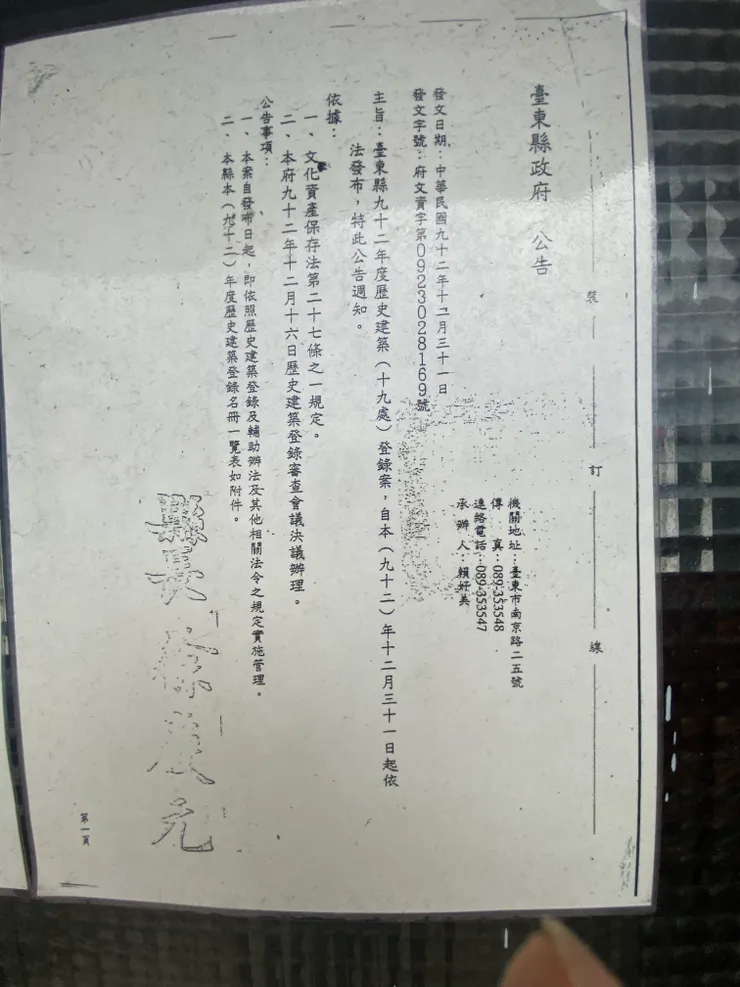 臺東縣政府　公告
機關地址：臺東市南京路二五號
傳　真：089-353548
連絡電話：089-353547
承辦人：賴好美
發文日期：中華民國九十二年十二月三十一日
發文字號：府文資字第0923028169號
主旨：臺東縣九十二年度歷史建築（十九處）登錄案，自本（九十二）年十二月三十一日起依
法發布，特此公告週知。
依據：
一、文化資產保存法第二十七條之一規定。
二、本府九十二年十二月十六日歷史建築登錄審查會議決議辦理。
公告事項：
一、本案自發布日起，即依照歷史建築登錄及輔助辦法及其他相關法令之規定實施管理。
二、本縣本（九十二）年度歷史建築登錄名冊一覽表如附件。
縣長
第一頁
裝
訂
線